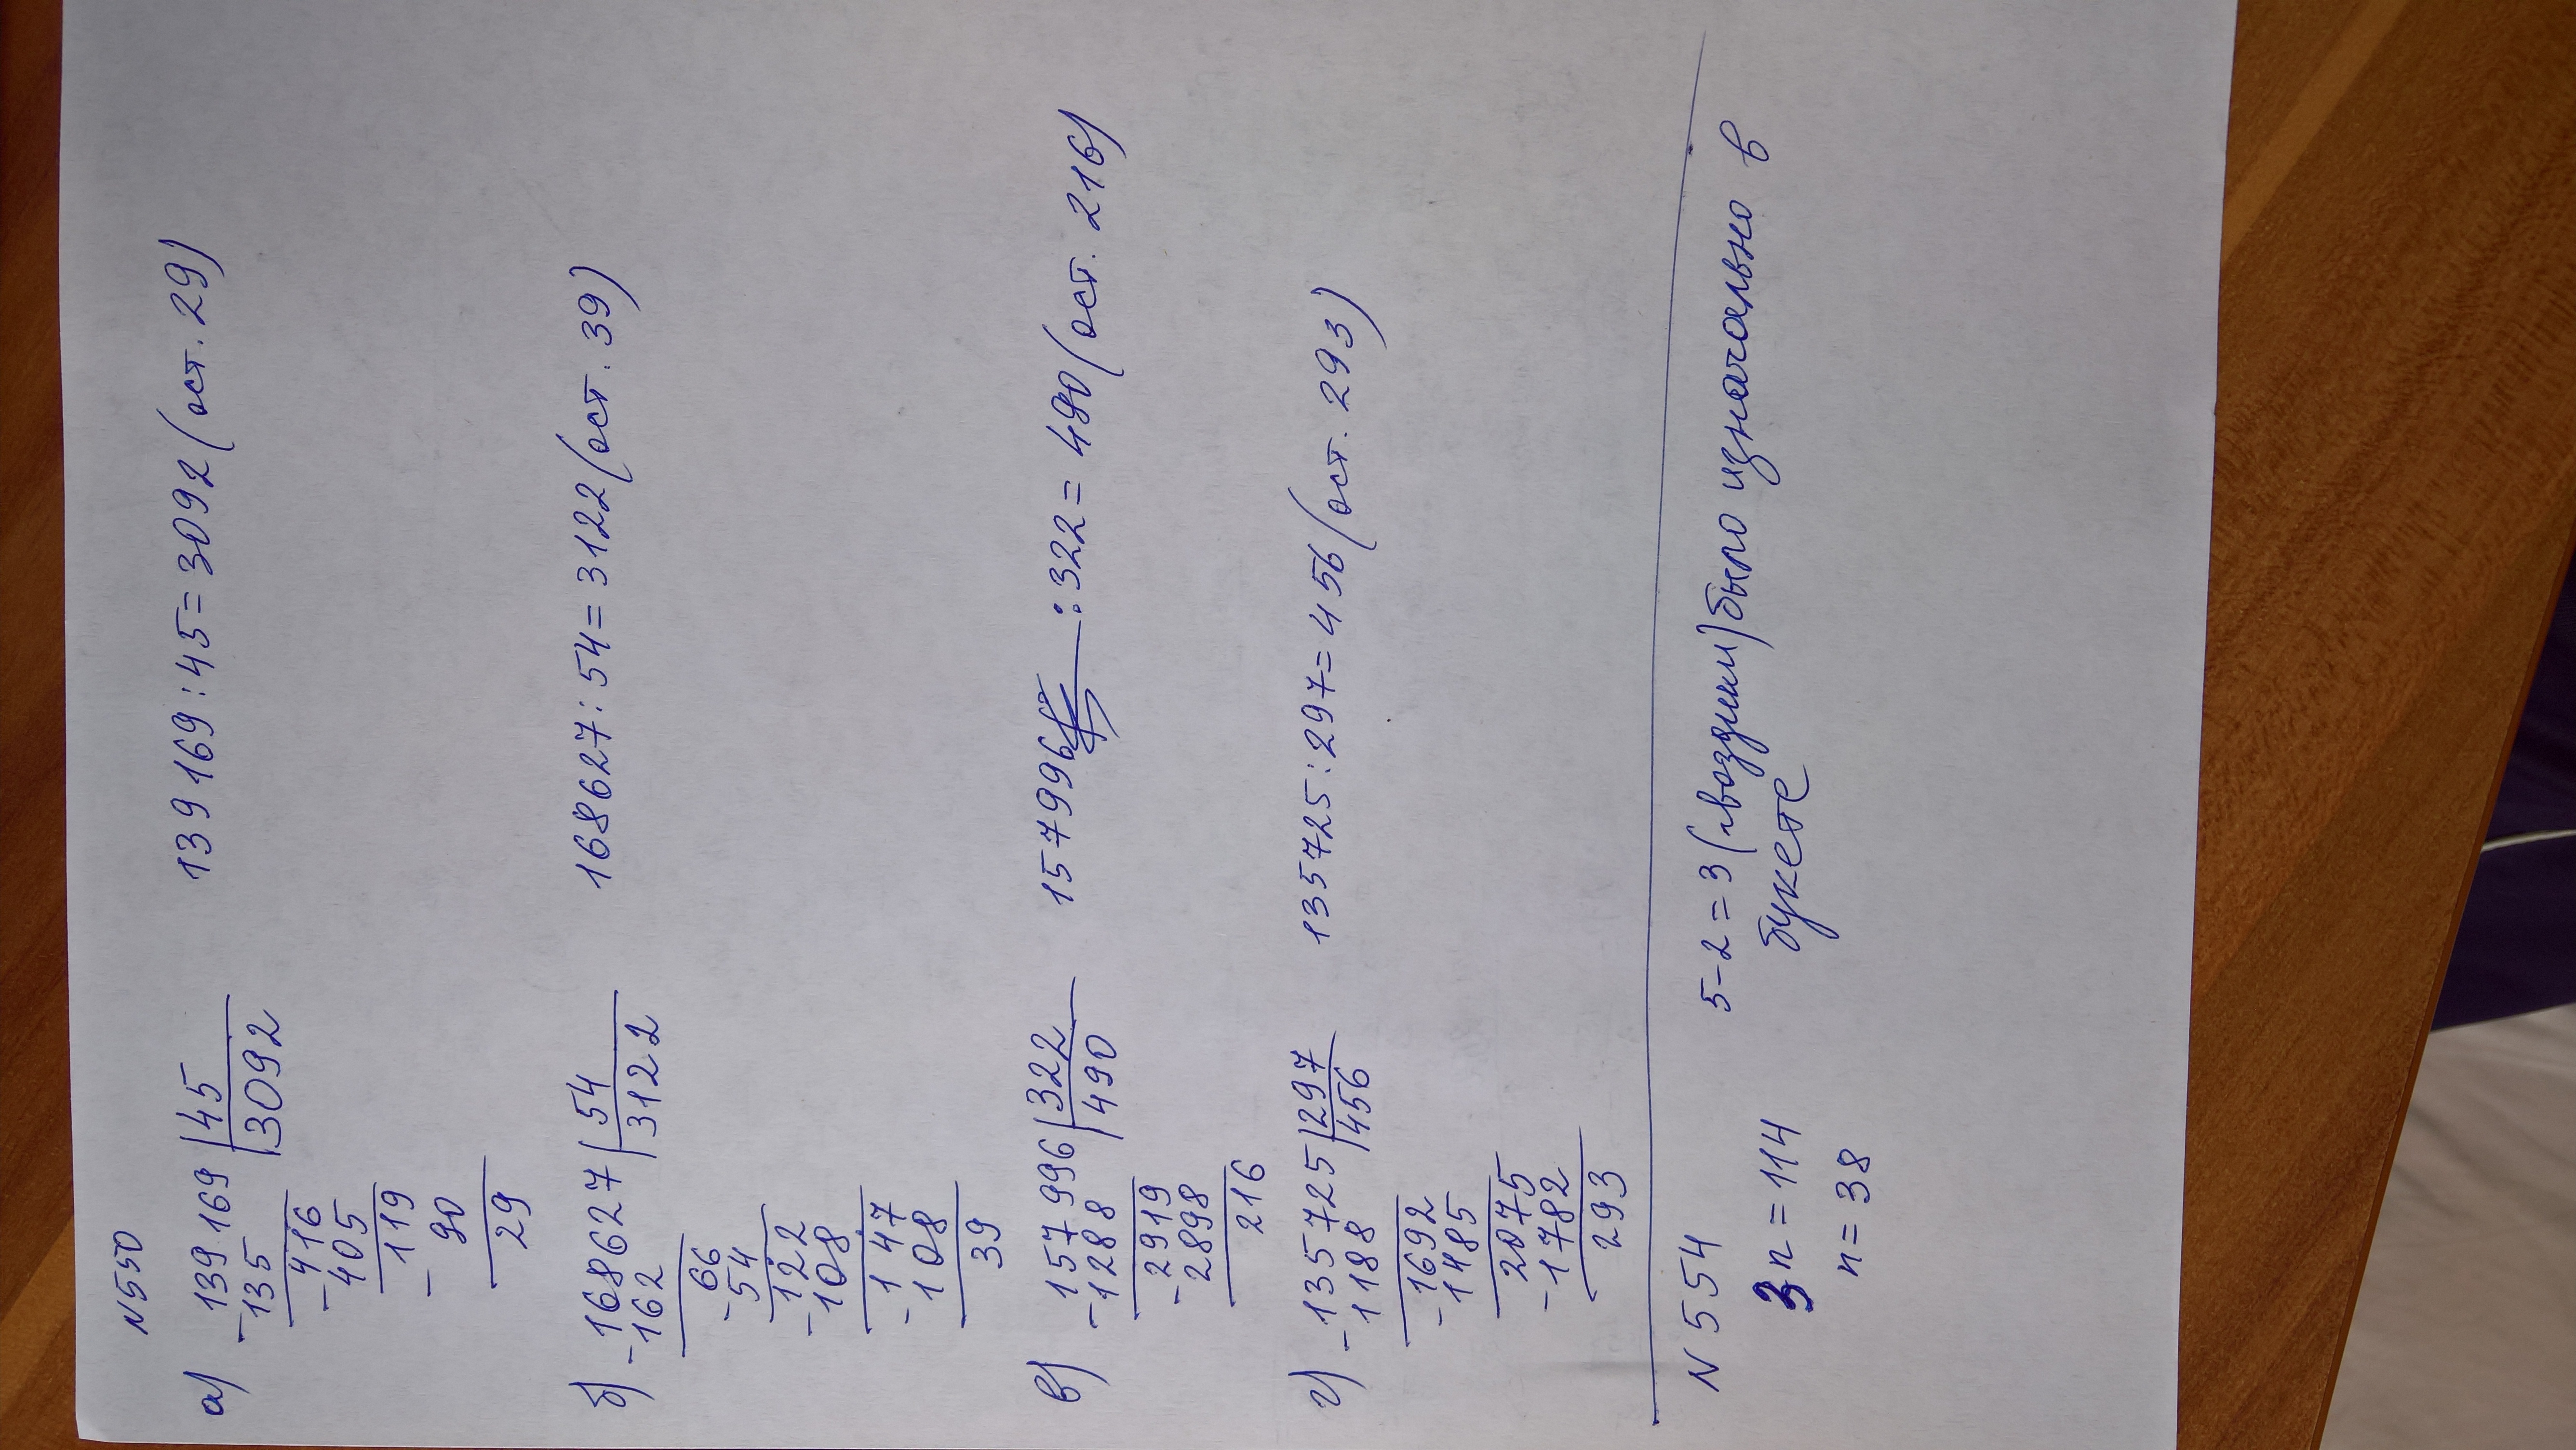 N550
а) 139 169 | 45     139 169 : 45 = 3092 (ост. 29)
- 135 | 3092
- 416
405
- 119
90
29
б) 168627 | 54     168627 : 54 = 3122 (ост. 39)
- 162 | 3122
- 66
54
- 122
108
- 147
108
39
в) 157 996 | 322     157996 : 322 = 490 (ост. 216)
- 1288 | 490
- 2919
2898
216
г) - 135725 | 297     135725 : 297 = 456 (ост. 293)
1188 | 456
- 1692
1485
2075
- 1782
293
N 554     5-2=3 (гвоздики) было изначально в
букете
3n = 114
n = 38